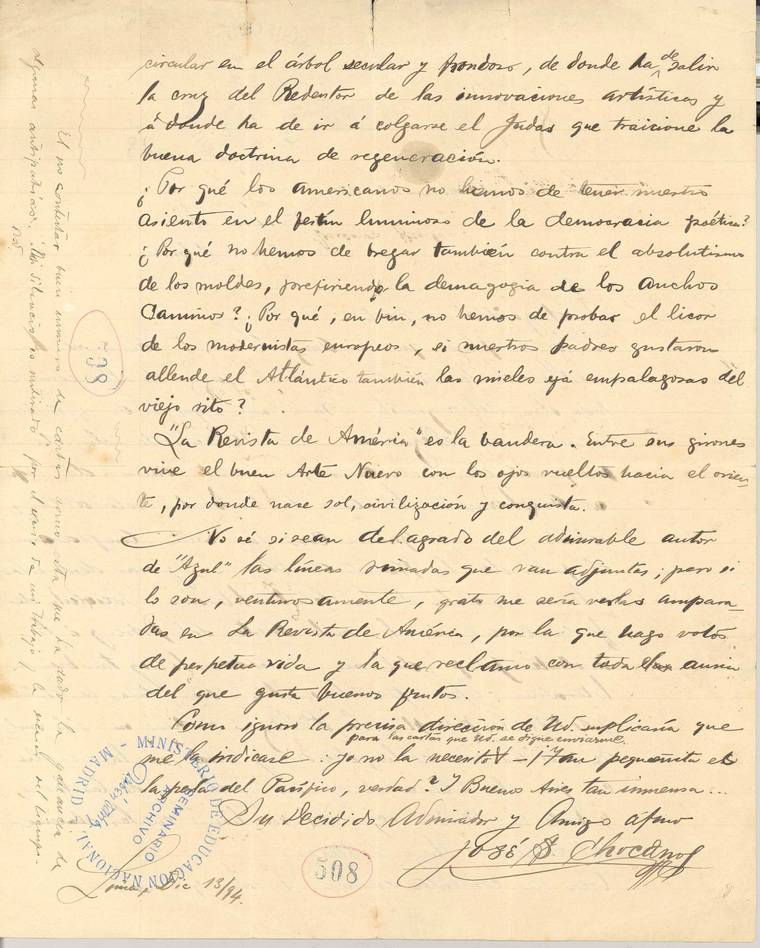 circular en el árbol secular y frondoso, de donde ha de salir
la cruz del Redentor de las innovaciones artísticas y
á donde ha de ir á colgarse el Judas que traicione la
buena doctrina de regeneración.
¿Por qué los americanos no hemos de tener nuestro
asiento en el festín luminoso de la democracia poética?
¿Por qué no hemos de bregar también contra el absolutismo
de los moldes, prefiriendo la demagogia de los anchos
caminos? ¿Por qué, en fin, no hemos de probar el licor
de los modernistas europeos, si nuestros padres gustaron
allende el Atlántico también las mieles ya empalagosas del
viejo rito?
"La Revista de América" es la bandera. Entre sus girones
vive el buen Arte Nuevo con los ojos vueltos hacia el orien-
te, por donde nace sol, civilización y conquista.
No sé si sean del agrado del admirable autor
de "Azul" las líneas rimadas que van adjuntas; pero si
lo son, venturosamente, grato me sería verlas ampara-
das en La Revista de América, por la que hago votos
de perpetua vida y la que reclamo con toda el ansia
del que gusta buenos frutos.
Como ignoro la precisa dirección de Ud. suplicaría que
para las cartas que Ud. se digne enviarme
me la indicase: yo no la necesito – ¡Tan pequeñita es
la perla del Pacífico, verdad? Y Buenos Aires tan inmensa...
Su decidido Admirador y Amigo afmo
José S. Chocano
Lima, Dic 13/94.
508
508
MINISTERIO DE EDUCACIÓN NACIONAL - MADRID -
SEMINARIO
ARCHIVO
El no contestar buen número de cartas como esta me ha dado la ganancia de
algunas antipatías. Mi silencio es motivado por el exceso de mi trabajo, la escasez del tiempo.